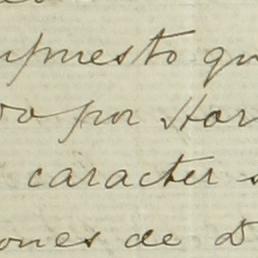 upuesto qu
do por Hor
caracter s
ones de D